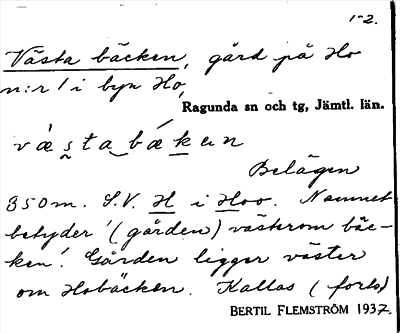 1-2.
Västa bäcken, gård på Ho
n:r 1 i byn Ho,
Ragunda sn och tg, Jämtl. län.
væsta bækεn
Belägen
350 m. S.V. H i Hoo. Namnet
betyder '(gården) västerom bäc-
ken'. Gården ligger väster
om Hobäcken. Kallas (forts)
BERTIL FLEMSTRÖM 1937.